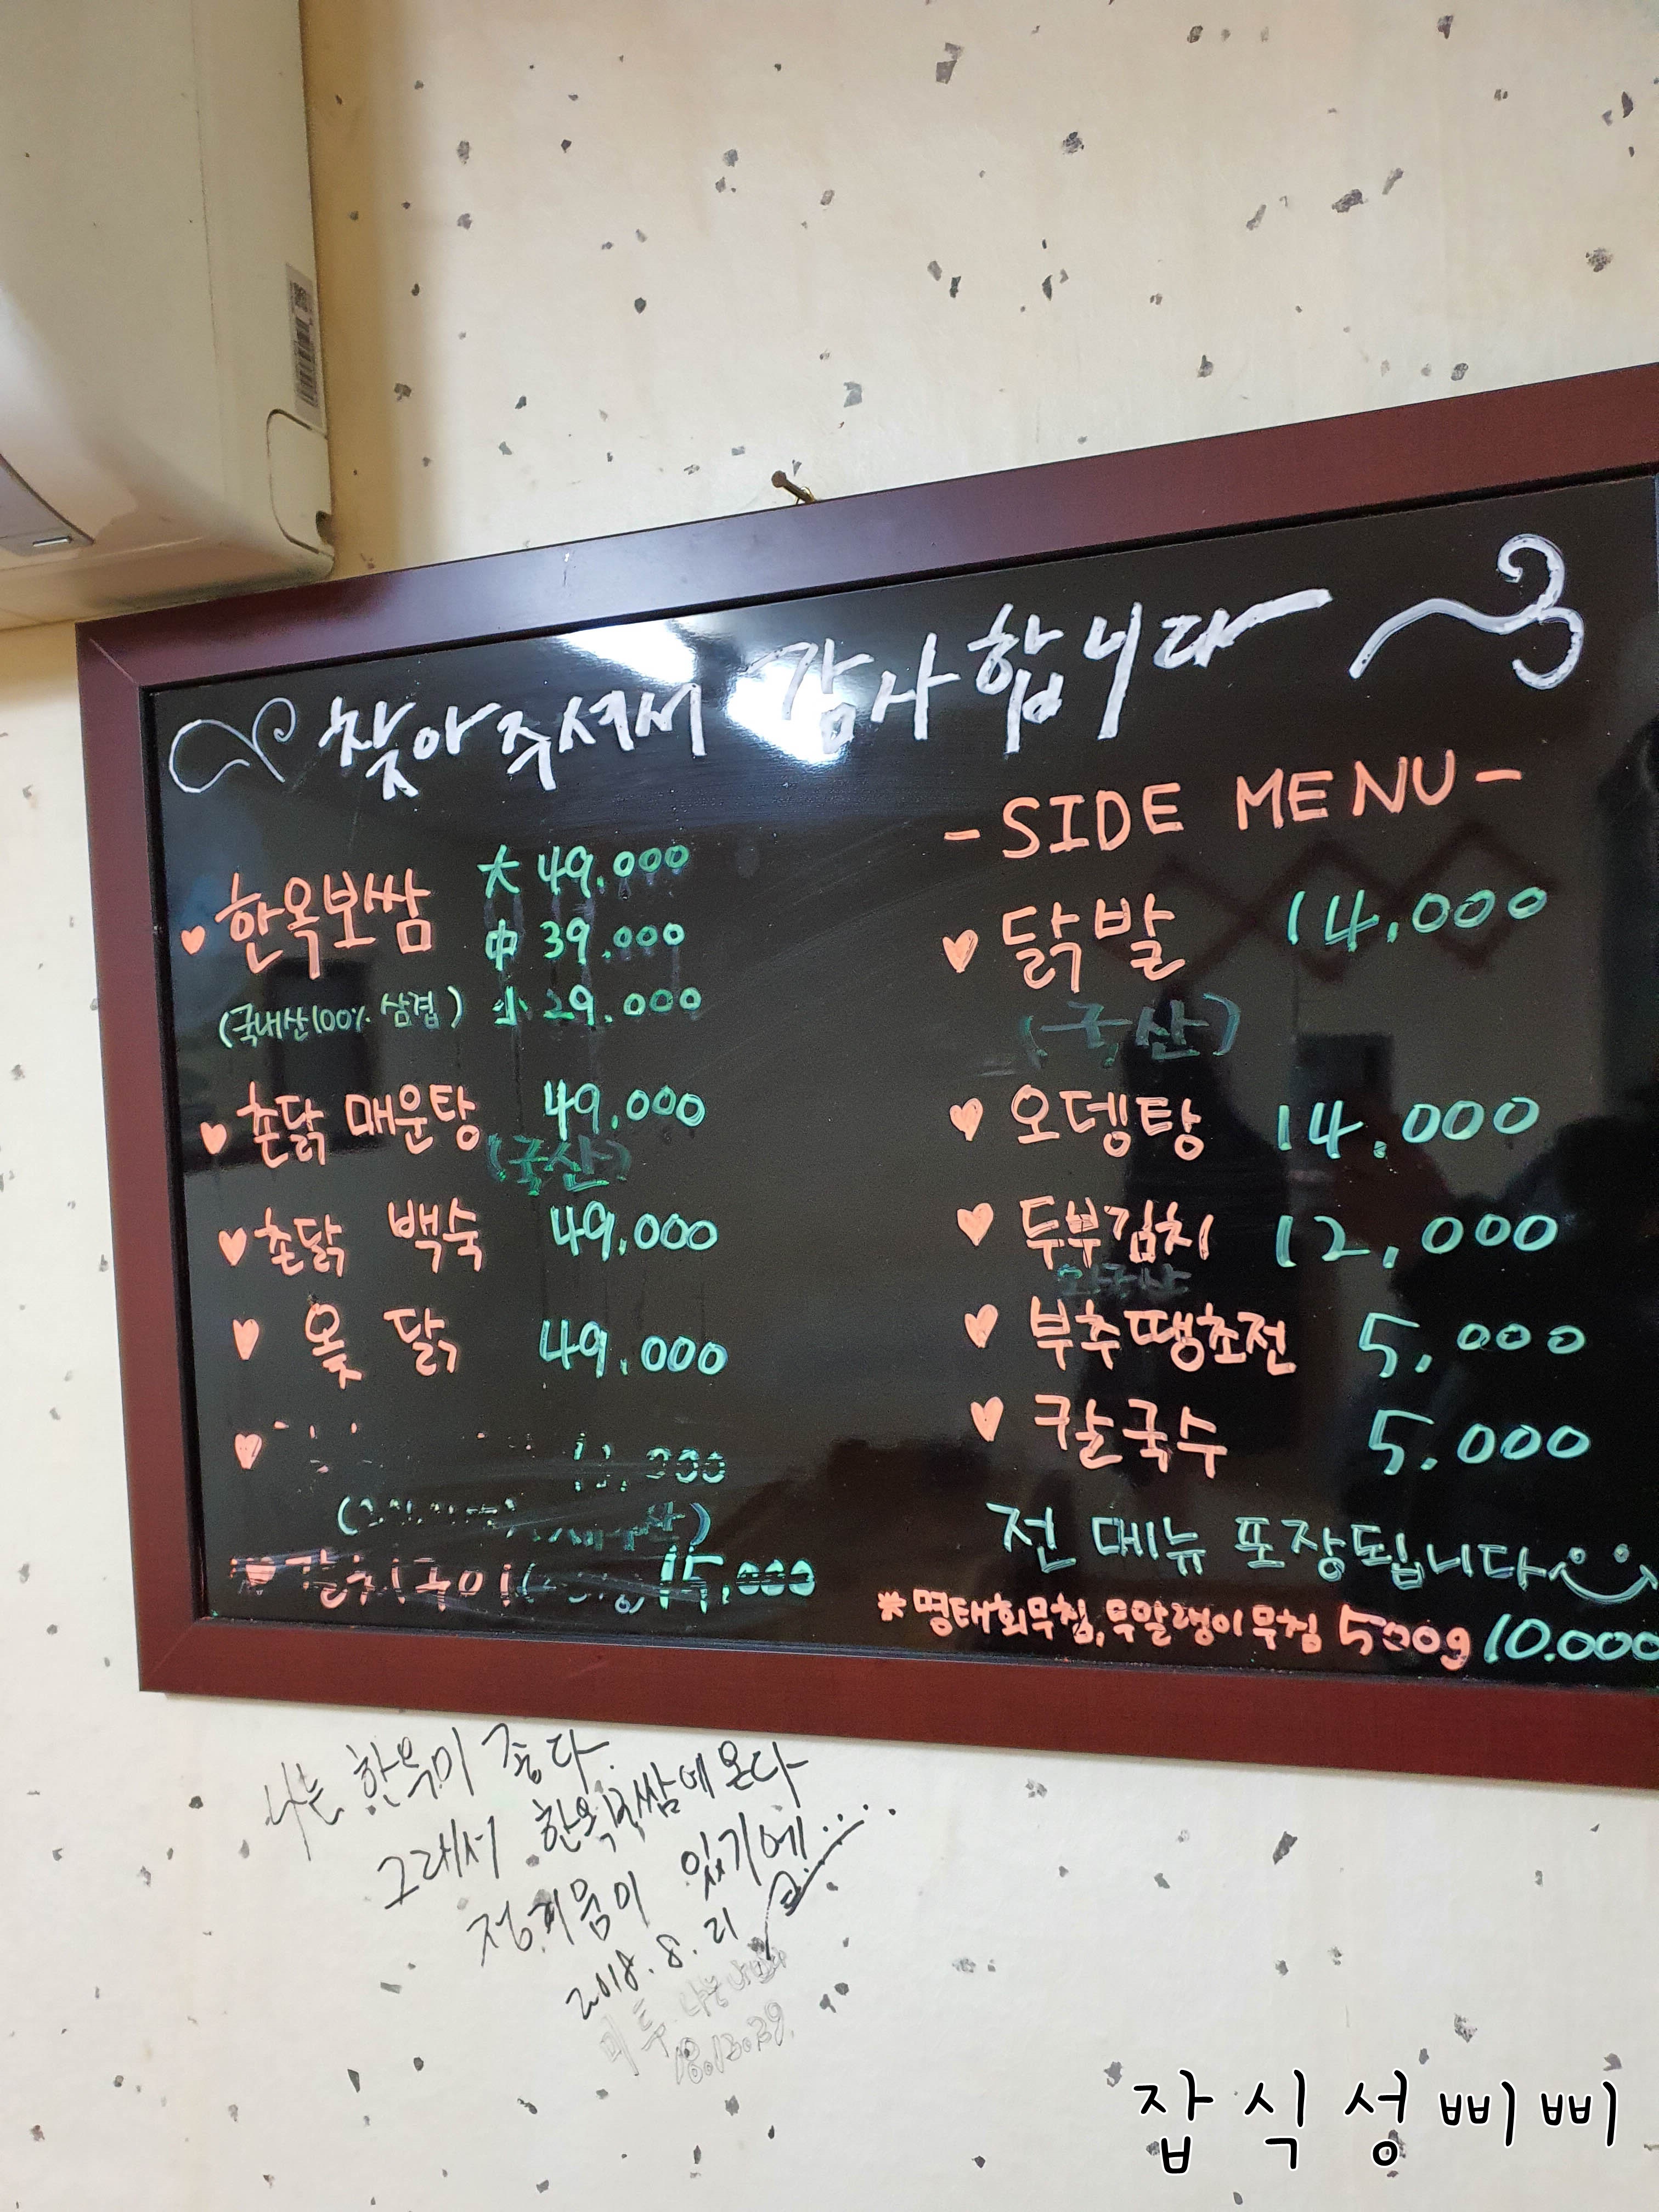 찾아주셔서 감사합니다
한옥보쌈 大 49.000
中 39.000
(국내산100% 삼겹) 小 29.000
촌닭 매운탕 49.000
(국산)
촌닭 백숙 49.000
옻닭 49.000
갈치구이 15,000
-SIDE MENU-
닭발 14.000
(국산)
오뎅탕 14.000
두부김치 12,000
부추땡초전 5,000
칼국수 5.000
전 메뉴 포장됩니다
*명태회무침, 무말랭이무침 500g 10.000
나는 한우미 좋다.
그래서 한옥보쌈에 온다
정겨움이 있기에....
2018. 8. 21
잡식성삐삐